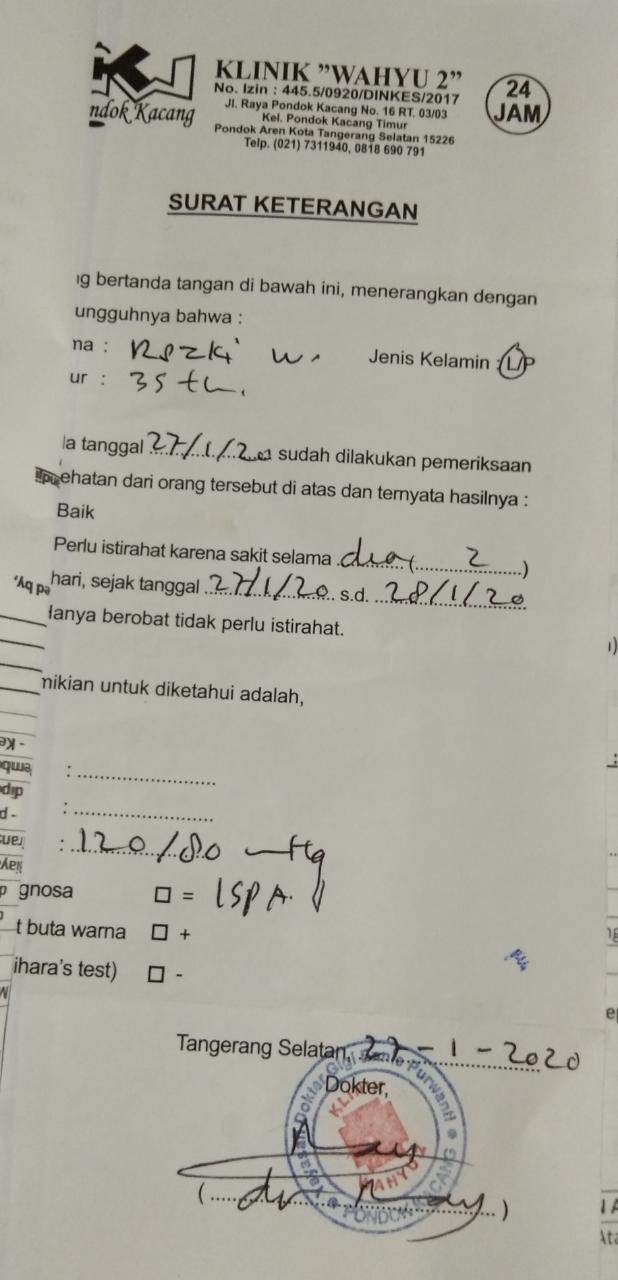 ndok Kacang
KLINIK ”WAHYU 2”
No. Izin : 445.5/0920/DINKES/2017
Jl. Raya Pondok Kacang No. 16 RT. 03/03
Kel. Pondok Kacang Timur
Pondok Aren Kota Tangerang Selatan 15226
Telp. (021) 7311940, 0818 690 791
24 JAM
SURAT KETERANGAN
g bertanda tangan di bawah ini, menerangkan dengan
ungguhnya bahwa :
na : Rizki W. Jenis Kelamin : L/P
ur : 35 th.
la tanggal 27/1/20 sudah dilakukan pemeriksaan
ehatan dari orang tersebut di atas dan ternyata hasilnya :
Baik
Perlu istirahat karena sakit selama dua (2)
hari, sejak tanggal 27/1/20 s.d. 28/1/20
lanya berobat tidak perlu istirahat.
mikian untuk diketahui adalah,
:
:
: 120/80 mmHg
gnosa □ = ISPA.
t buta warna □ +
ihara's test) □ -
Tangerang Selatan, 27-1-2020
Dokter,
Yayasan Doktar Gigi Purwanti
KLINIK
WAHYU 2
PONDOK KACANG
(dr Ray)